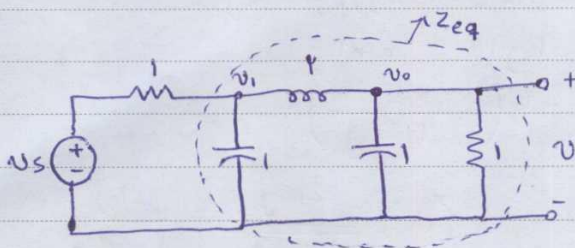 Zeq
1
v₁
۲
v₀
+
vs
+
-
1
1
1
v
-